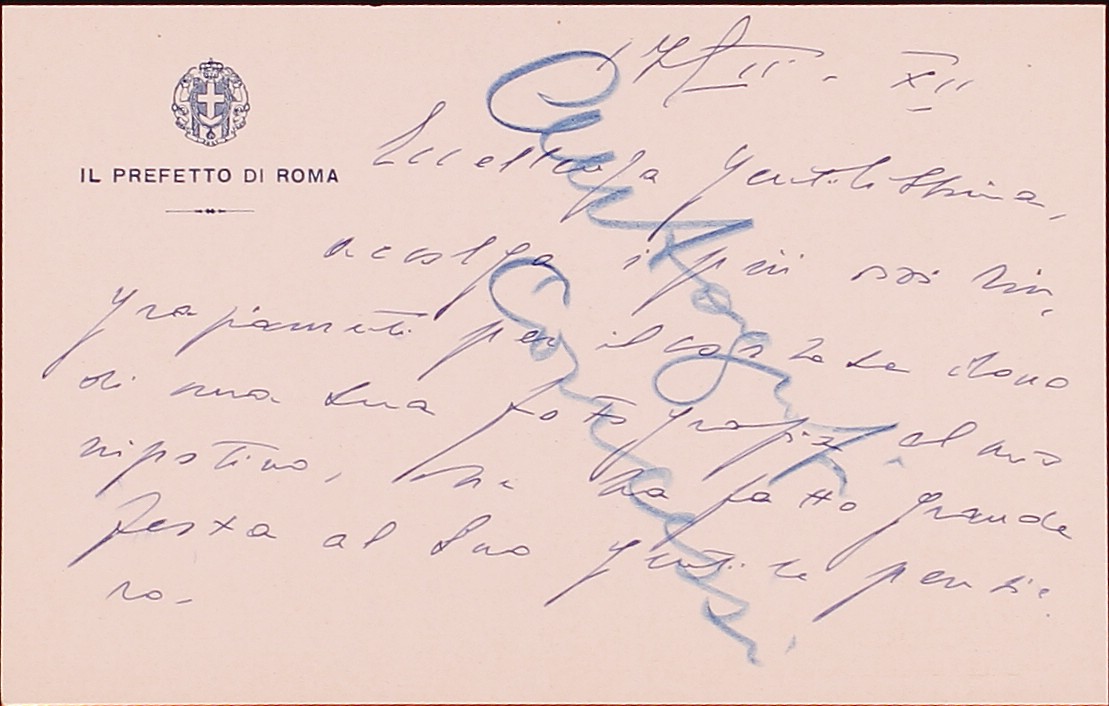 17/II - XII
IL PREFETTO DI ROMA
Eccellenza gentilissima,
accolga i più vivi rin-
graziamenti per il cortese dono
di una sua fotografia al mio
nipotino, che ha fatto grande
festa al Suo gentile pensie-
ro-